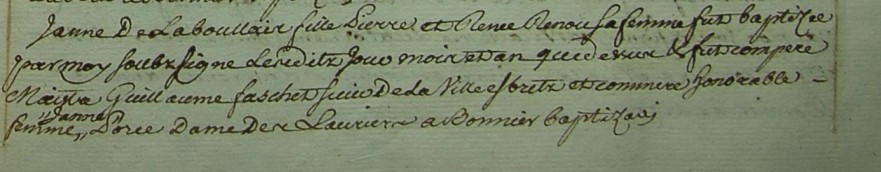 Janne De Laboullair fille Pierre et Renee Renou sa femme fut baptizee
par moy soubz signe Lesdits Jour mois et an que dessus & fut compere
Maistre Guillaume faschet sieur De la Ville esbretz et commere honorable
Janne
femme,, Poree Dame Des Lauriers a Bonnier baptizavi